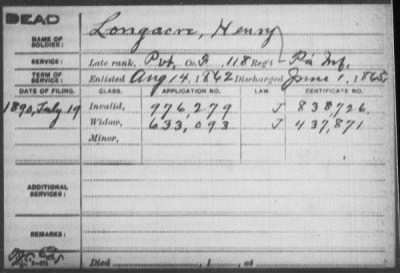 DEAD
NAME OF SOLDIER: Longacre, Henry
SERVICE: Late rank, Pvt, Co. F, 118 Reg't Pa Inf.
TERM OF SERVICE: Enlisted Aug 14, 1862 Discharged June 1, 1865
DATE OF FILING. CLASS. APPLICATION NO. LAW CERTIFICATE NO.
1890, July 19 Invalid, 976,279 J 838,726.
Widow, 633,093 J 437,871
Minor,
ADDITIONAL SERVICES:
REMARKS:
Died , 1 , at